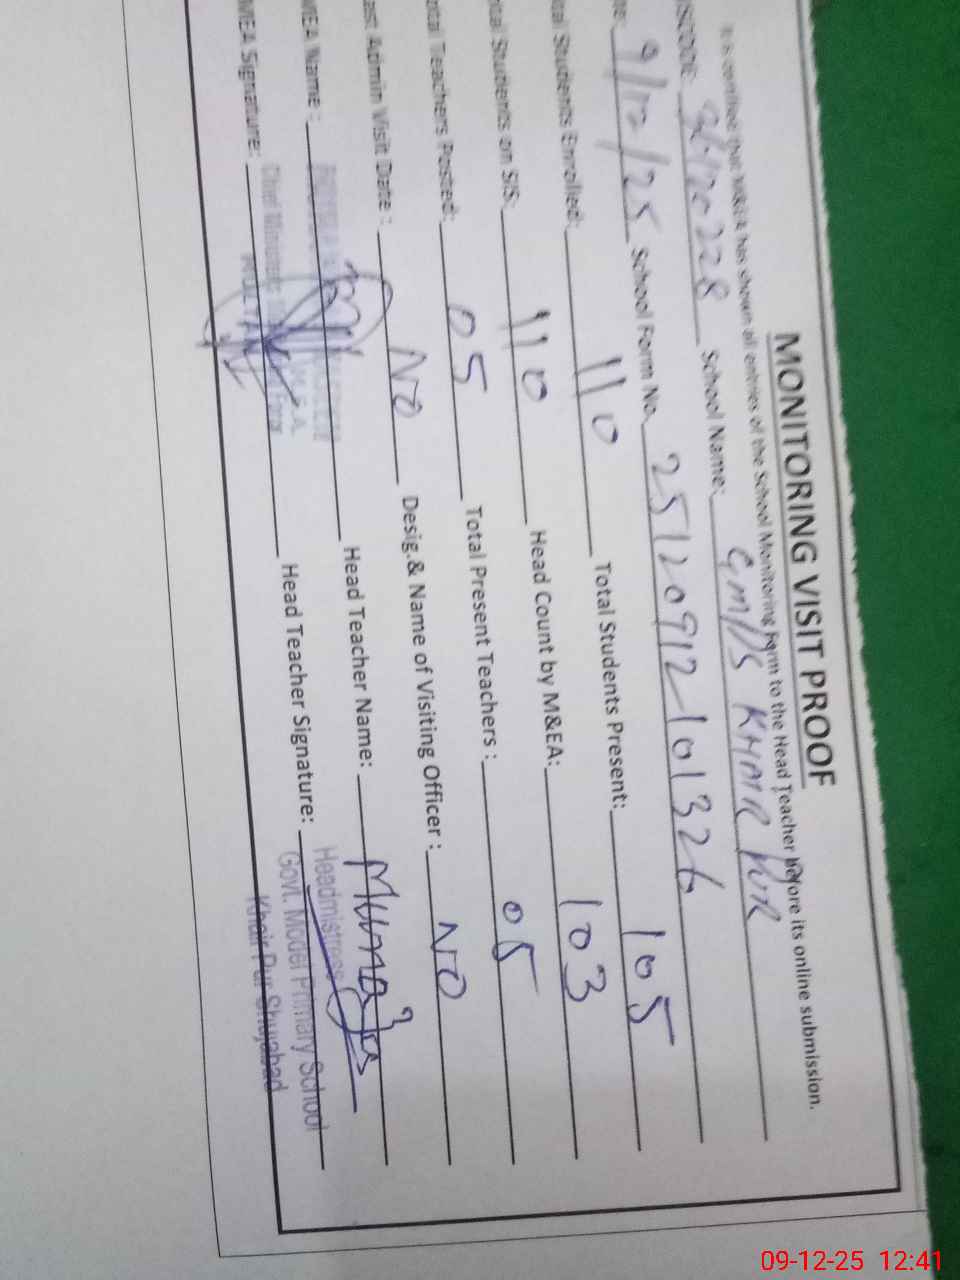 MONITORING VISIT PROOF
It is certified that M&EA has shown all entries of the School Monitoring Form to the Head Teacher before its online submission.
School Name: GMPS KHAIR PUR
9/12/25 School Form No. 25120912101326
Students Enrolled: 110 Total Students Present: 105
Students on SIS: 110 Head Count by M&EA: 103
Teachers Posted: 05 Total Present Teachers : 05
Admin Visit Date : NO Desig.& Name of Visiting Officer : NO
MEA Name : Head Teacher Name:
MEA Signature: Head Teacher Signature:
Headmistress
Govt. Model Primary School
Khair Pur Shujabad
09-12-25 12:41